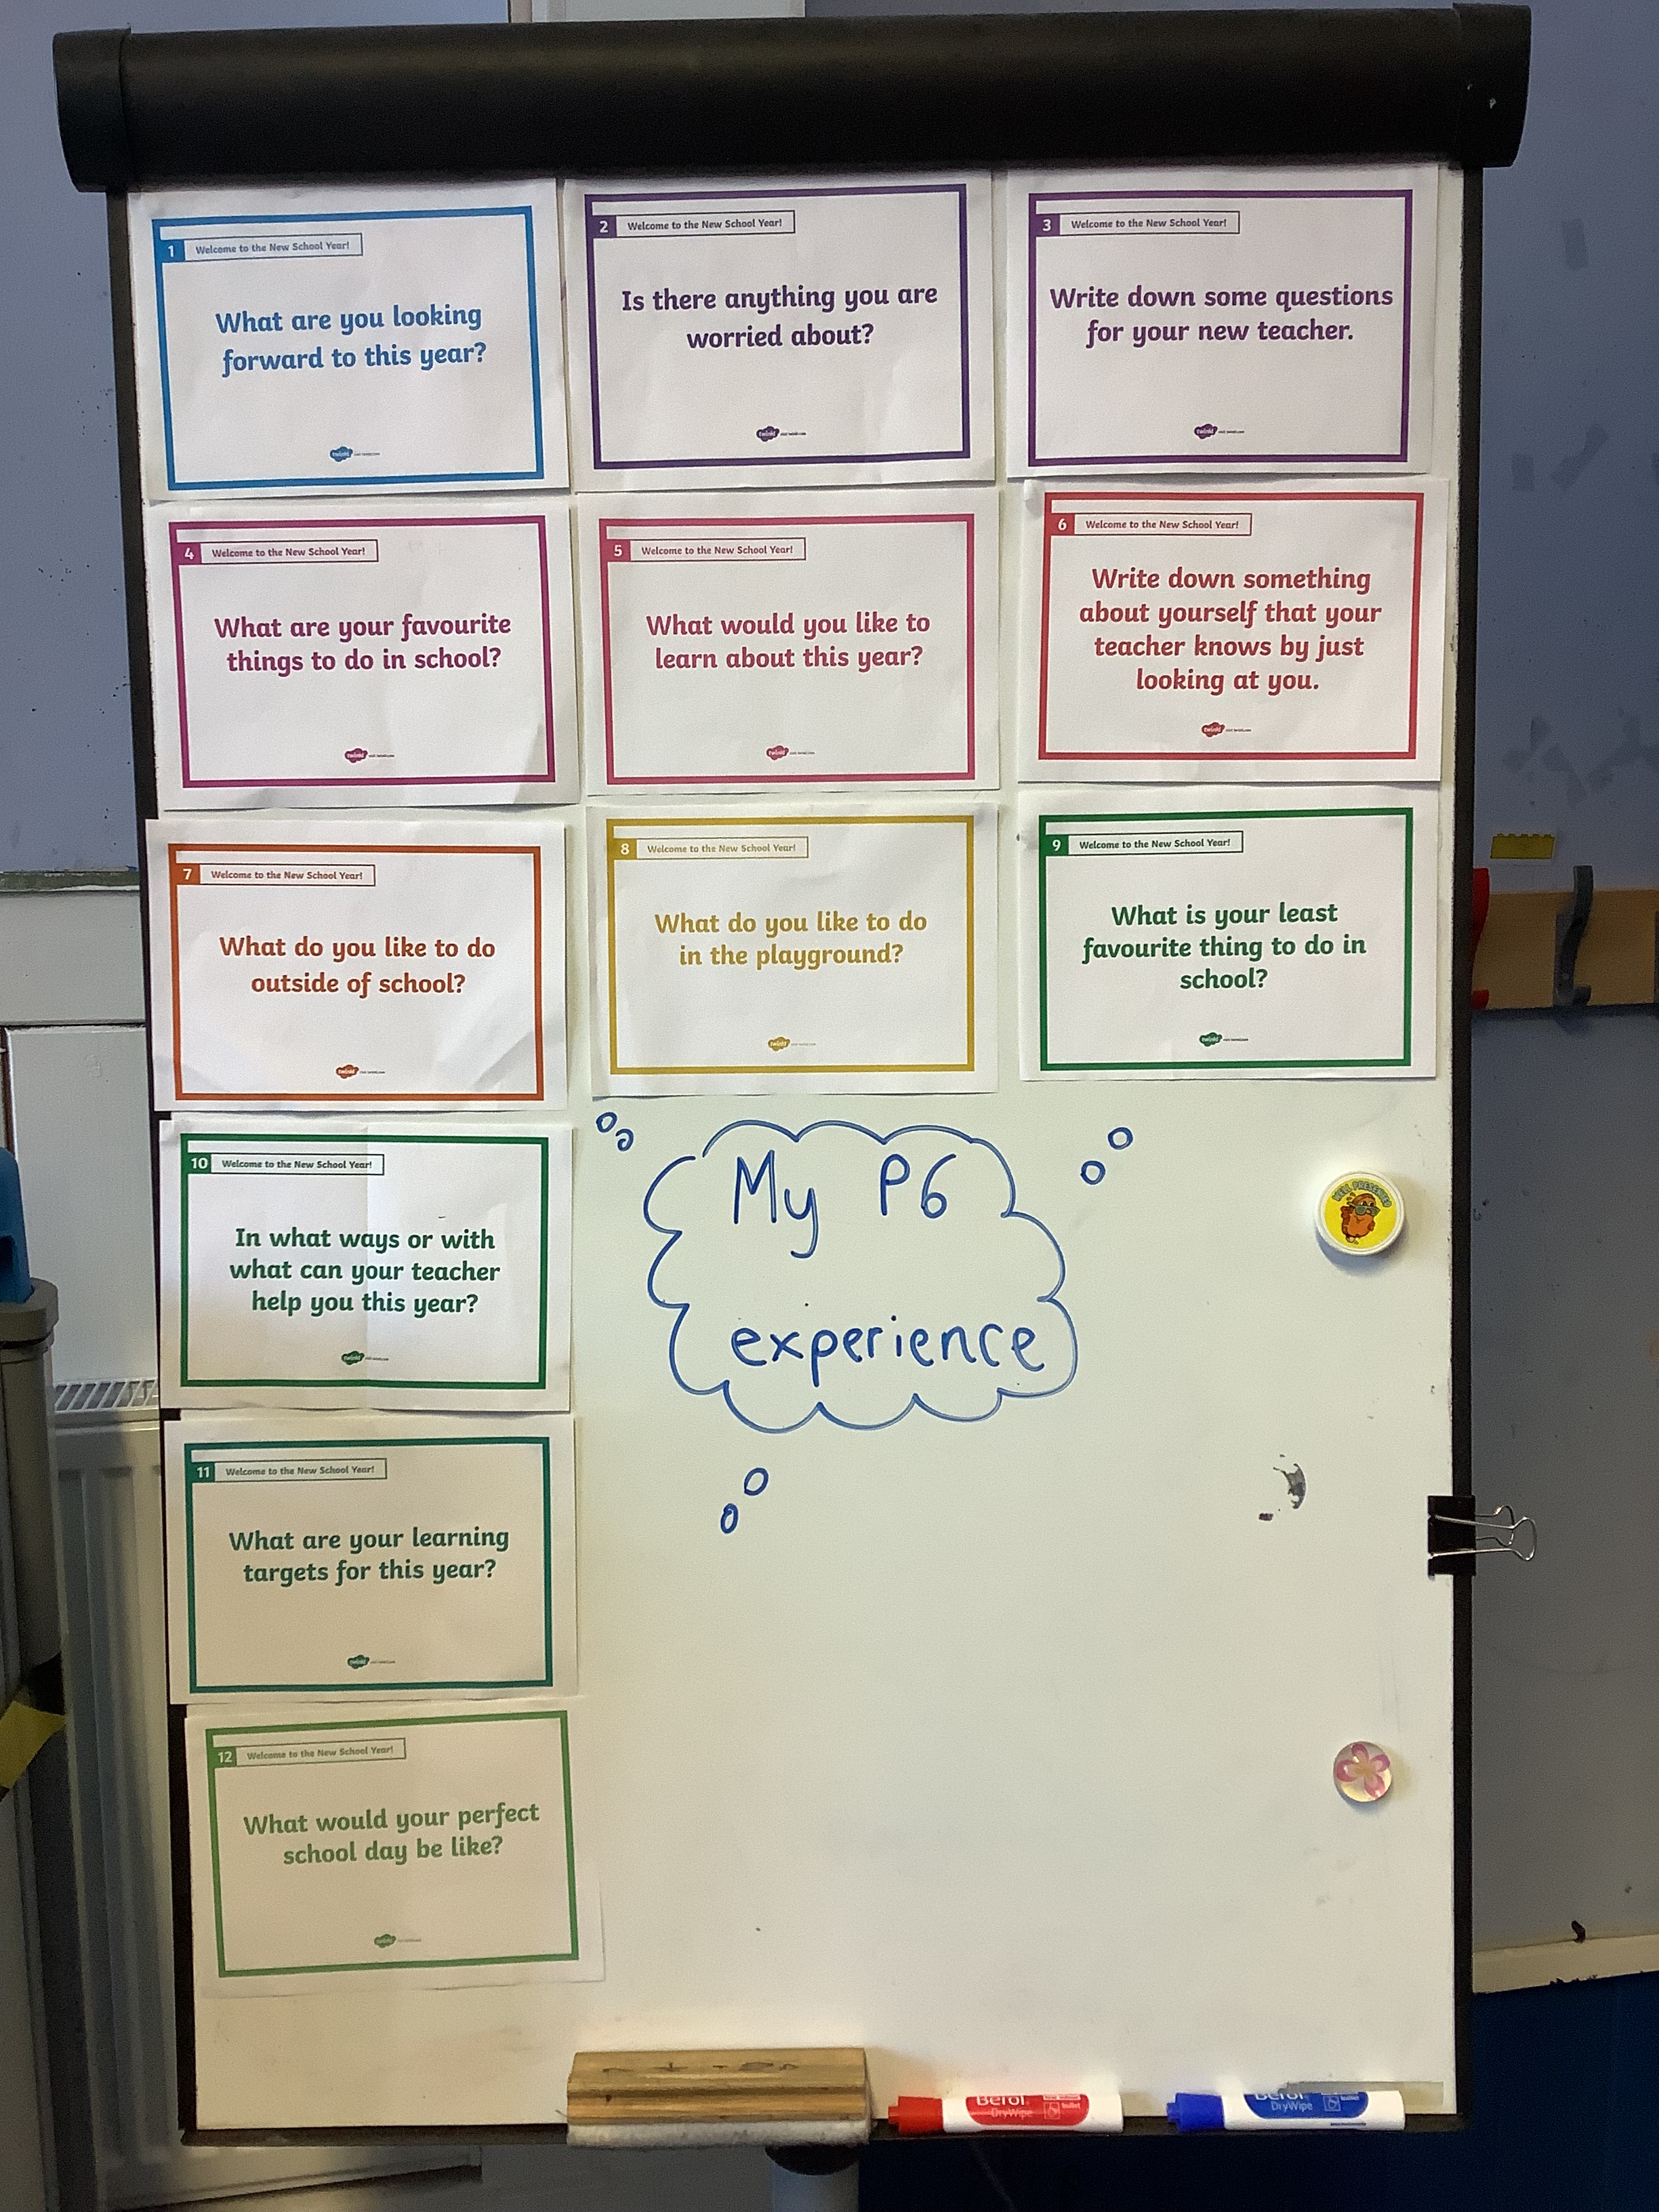 1 Welcome to the New School Year!
What are you looking
forward to this year?
twinkl
2 Welcome to the New School Year!
Is there anything you are
worried about?
twinkl visit twinkl.com
3 Welcome to the New School Year!
Write down some questions
for your new teacher.
twinkl visit twinkl.com
4 Welcome to the New School Year!
What are your favourite
things to do in school?
twinkl visit twinkl.com
5 Welcome to the New School Year!
What would you like to
learn about this year?
twinkl visit twinkl.com
6 Welcome to the New School Year!
Write down something
about yourself that your
teacher knows by just
looking at you.
twinkl visit twinkl.com
7 Welcome to the New School Year!
What do you like to do
outside of school?
twinkl visit twinkl.com
8 Welcome to the New School Year!
What do you like to do
in the playground?
twinkl visit twinkl.com
9 Welcome to the New School Year!
What is your least
favourite thing to do in
school?
twinkl visit twinkl.com
10 Welcome to the New School Year!
In what ways or with
what can your teacher
help you this year?
twinkl
My P6
experience
WELL PRESENTED
11 Welcome to the New School Year!
What are your learning
targets for this year?
twinkl
12 Welcome to the New School Year!
What would your perfect
school day be like?
twinkl
Berol
DryWipe
bullet
Berol
DryWipe
bullet